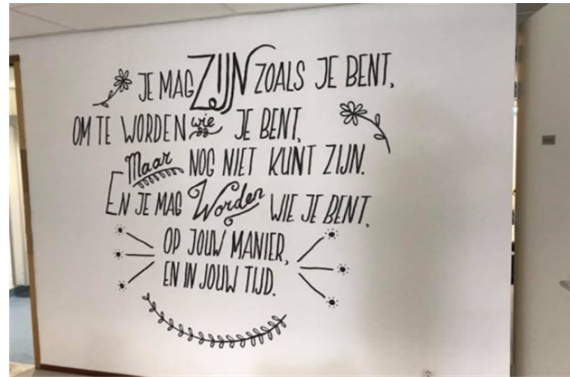 JE MAG ZIJN ZOALS JE BENT,
OM TE WORDEN wie JE BENT,
Maar NOG NIET KUNT ZIJN.
EN JE MAG Worden WIE JE BENT,
OP JOUW MANIER,
EN IN JOUW TIJD.